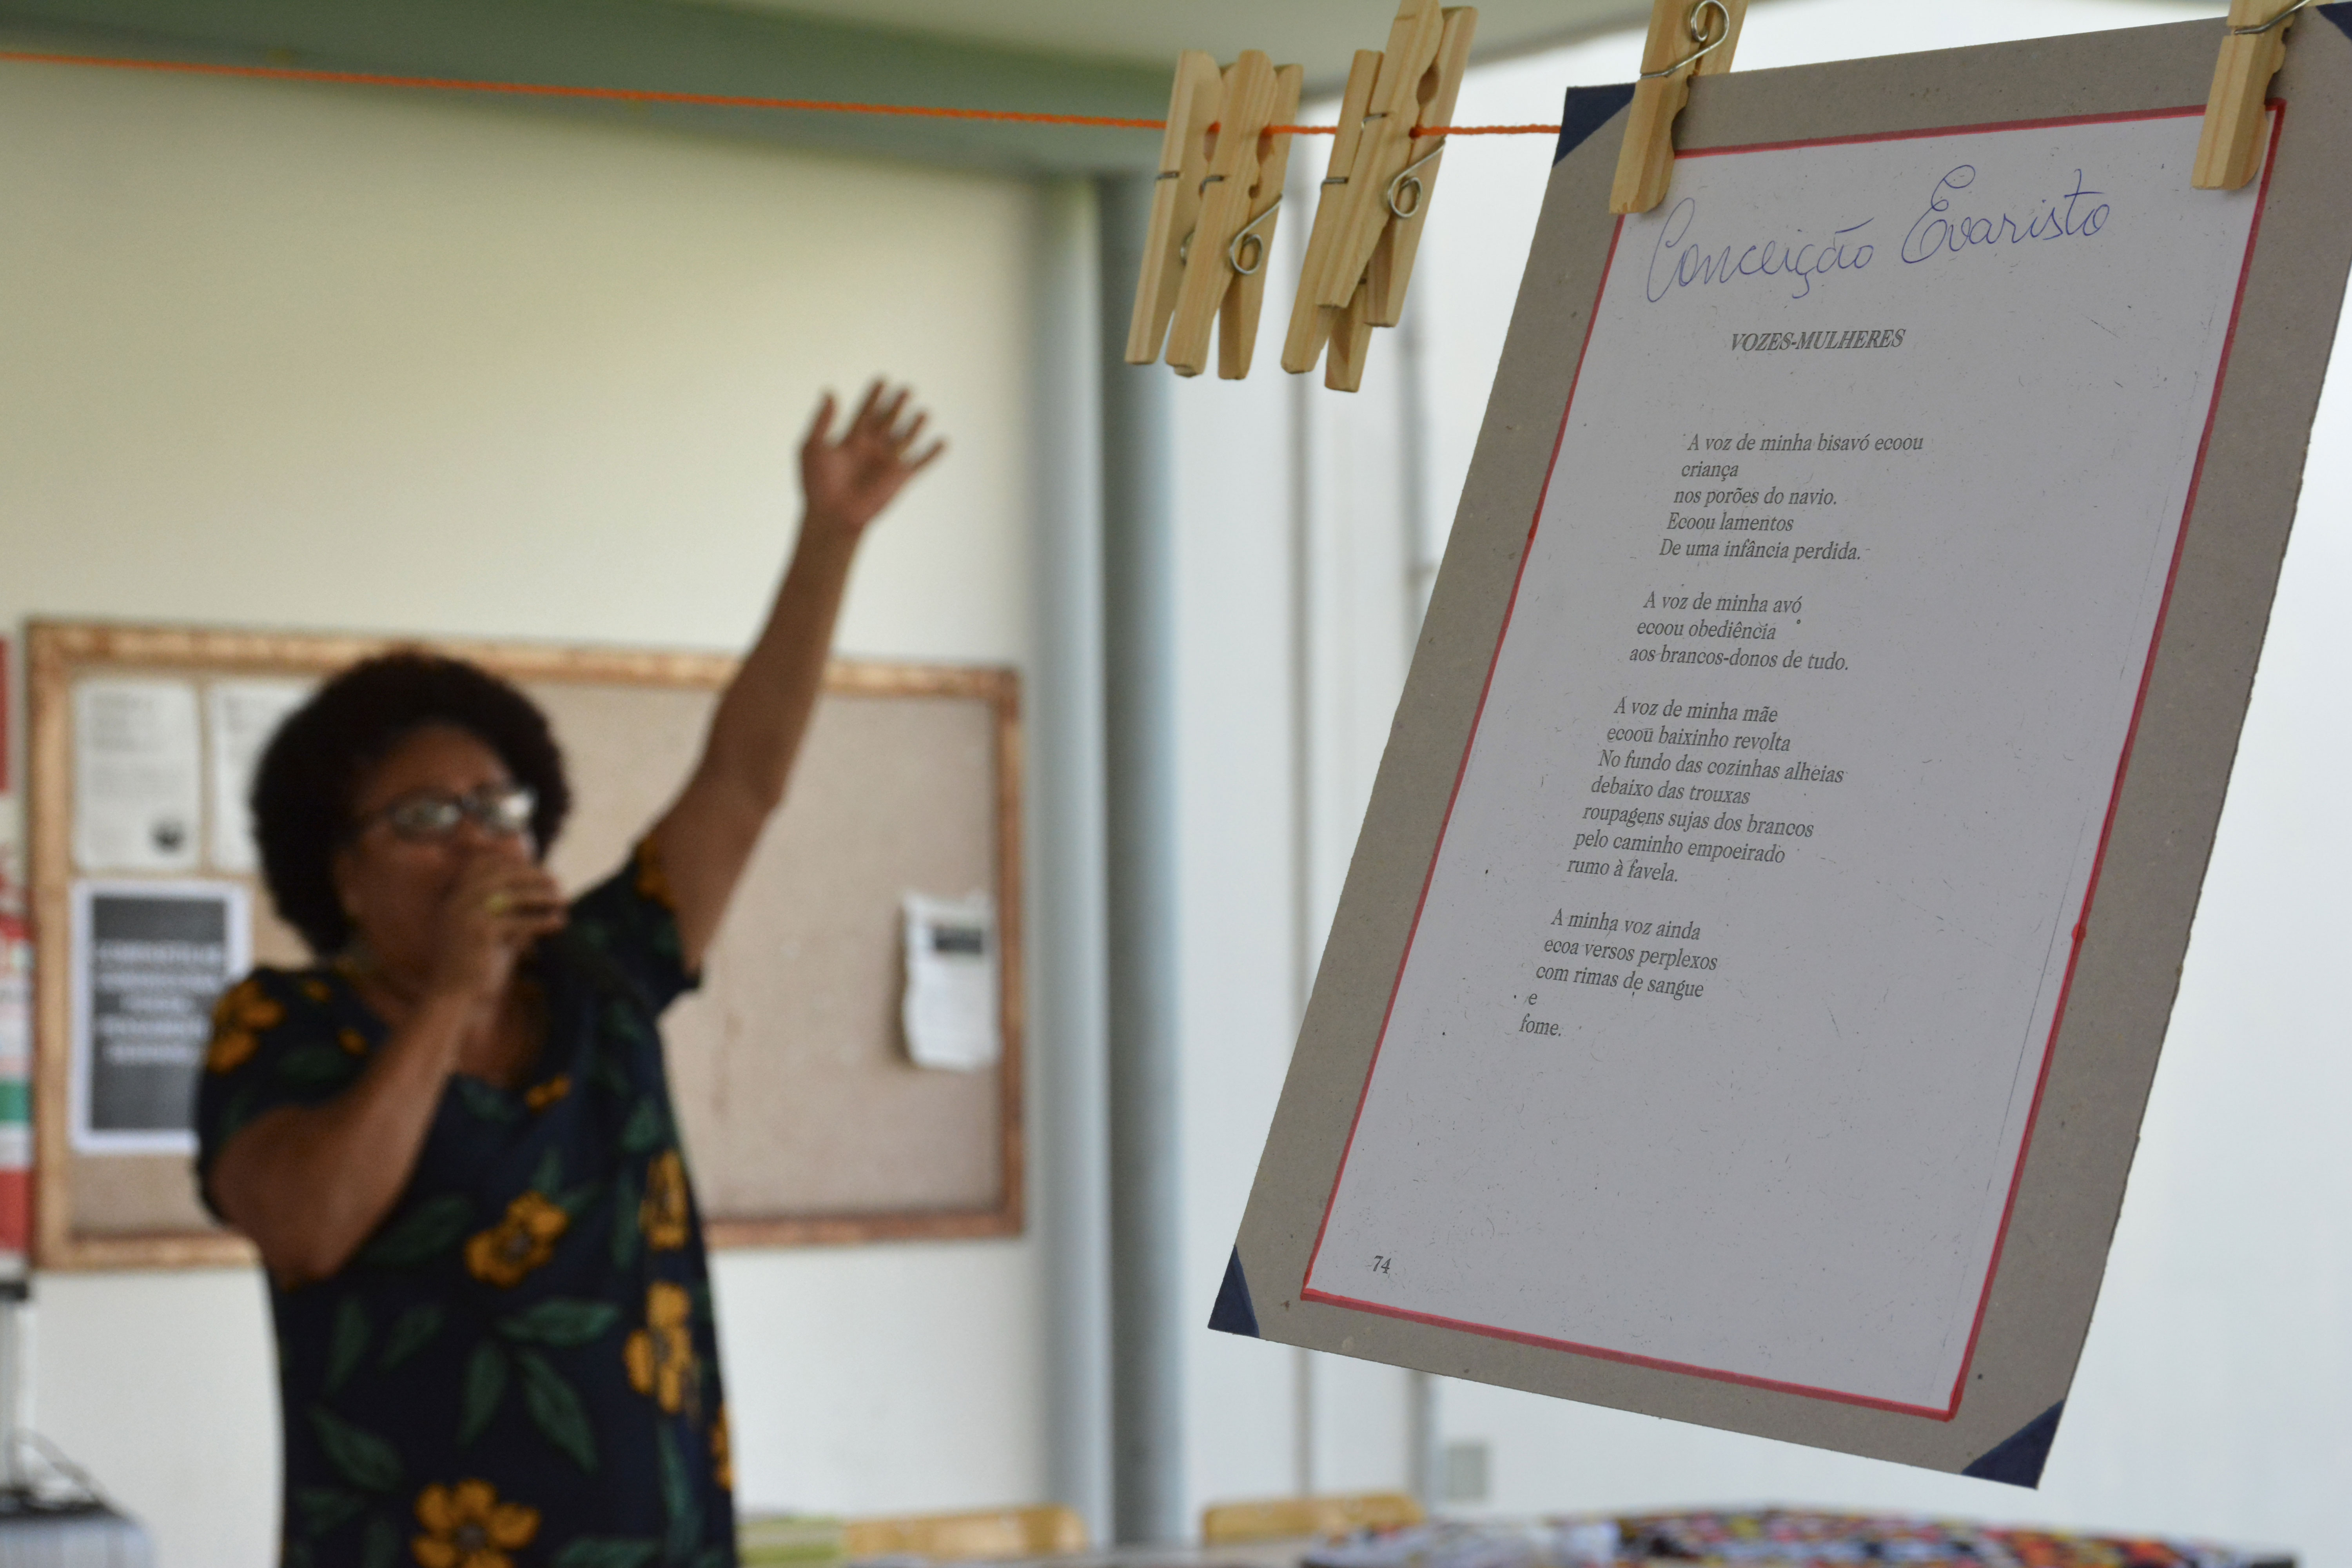 Conceição Evaristo
VOZES-MULHERES
A voz de minha bisavó ecoou
criança
nos porões do navio.
Ecoou lamentos
De uma infância perdida.
A voz de minha avó
ecoou obediência
aos brancos-donos de tudo.
A voz de minha mãe
ecoou baixinho revolta
No fundo das cozinhas alheias
debaixo das trouxas
roupagens sujas dos brancos
pelo caminho empoeirado
rumo à favela.
A minha voz ainda
ecoa versos perplexos
com rimas de sangue
e
fome.
74